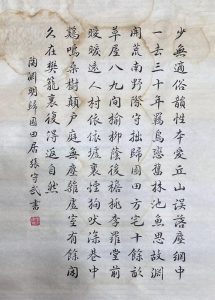 少無適俗韻性本愛丘山誤落塵網中
一去三十年羈鳥戀舊林池魚思故淵
開荒南野際守拙歸園田方宅十餘畝
草屋八九間榆柳蔭後檐桃李羅堂前
曖曖遠人村依依墟裏煙狗吠深巷中
鷄鳴桑樹顛戶庭無塵雜虛室有餘閑
久在樊籠裏復得返自然
陶淵明歸園田居 張守武書